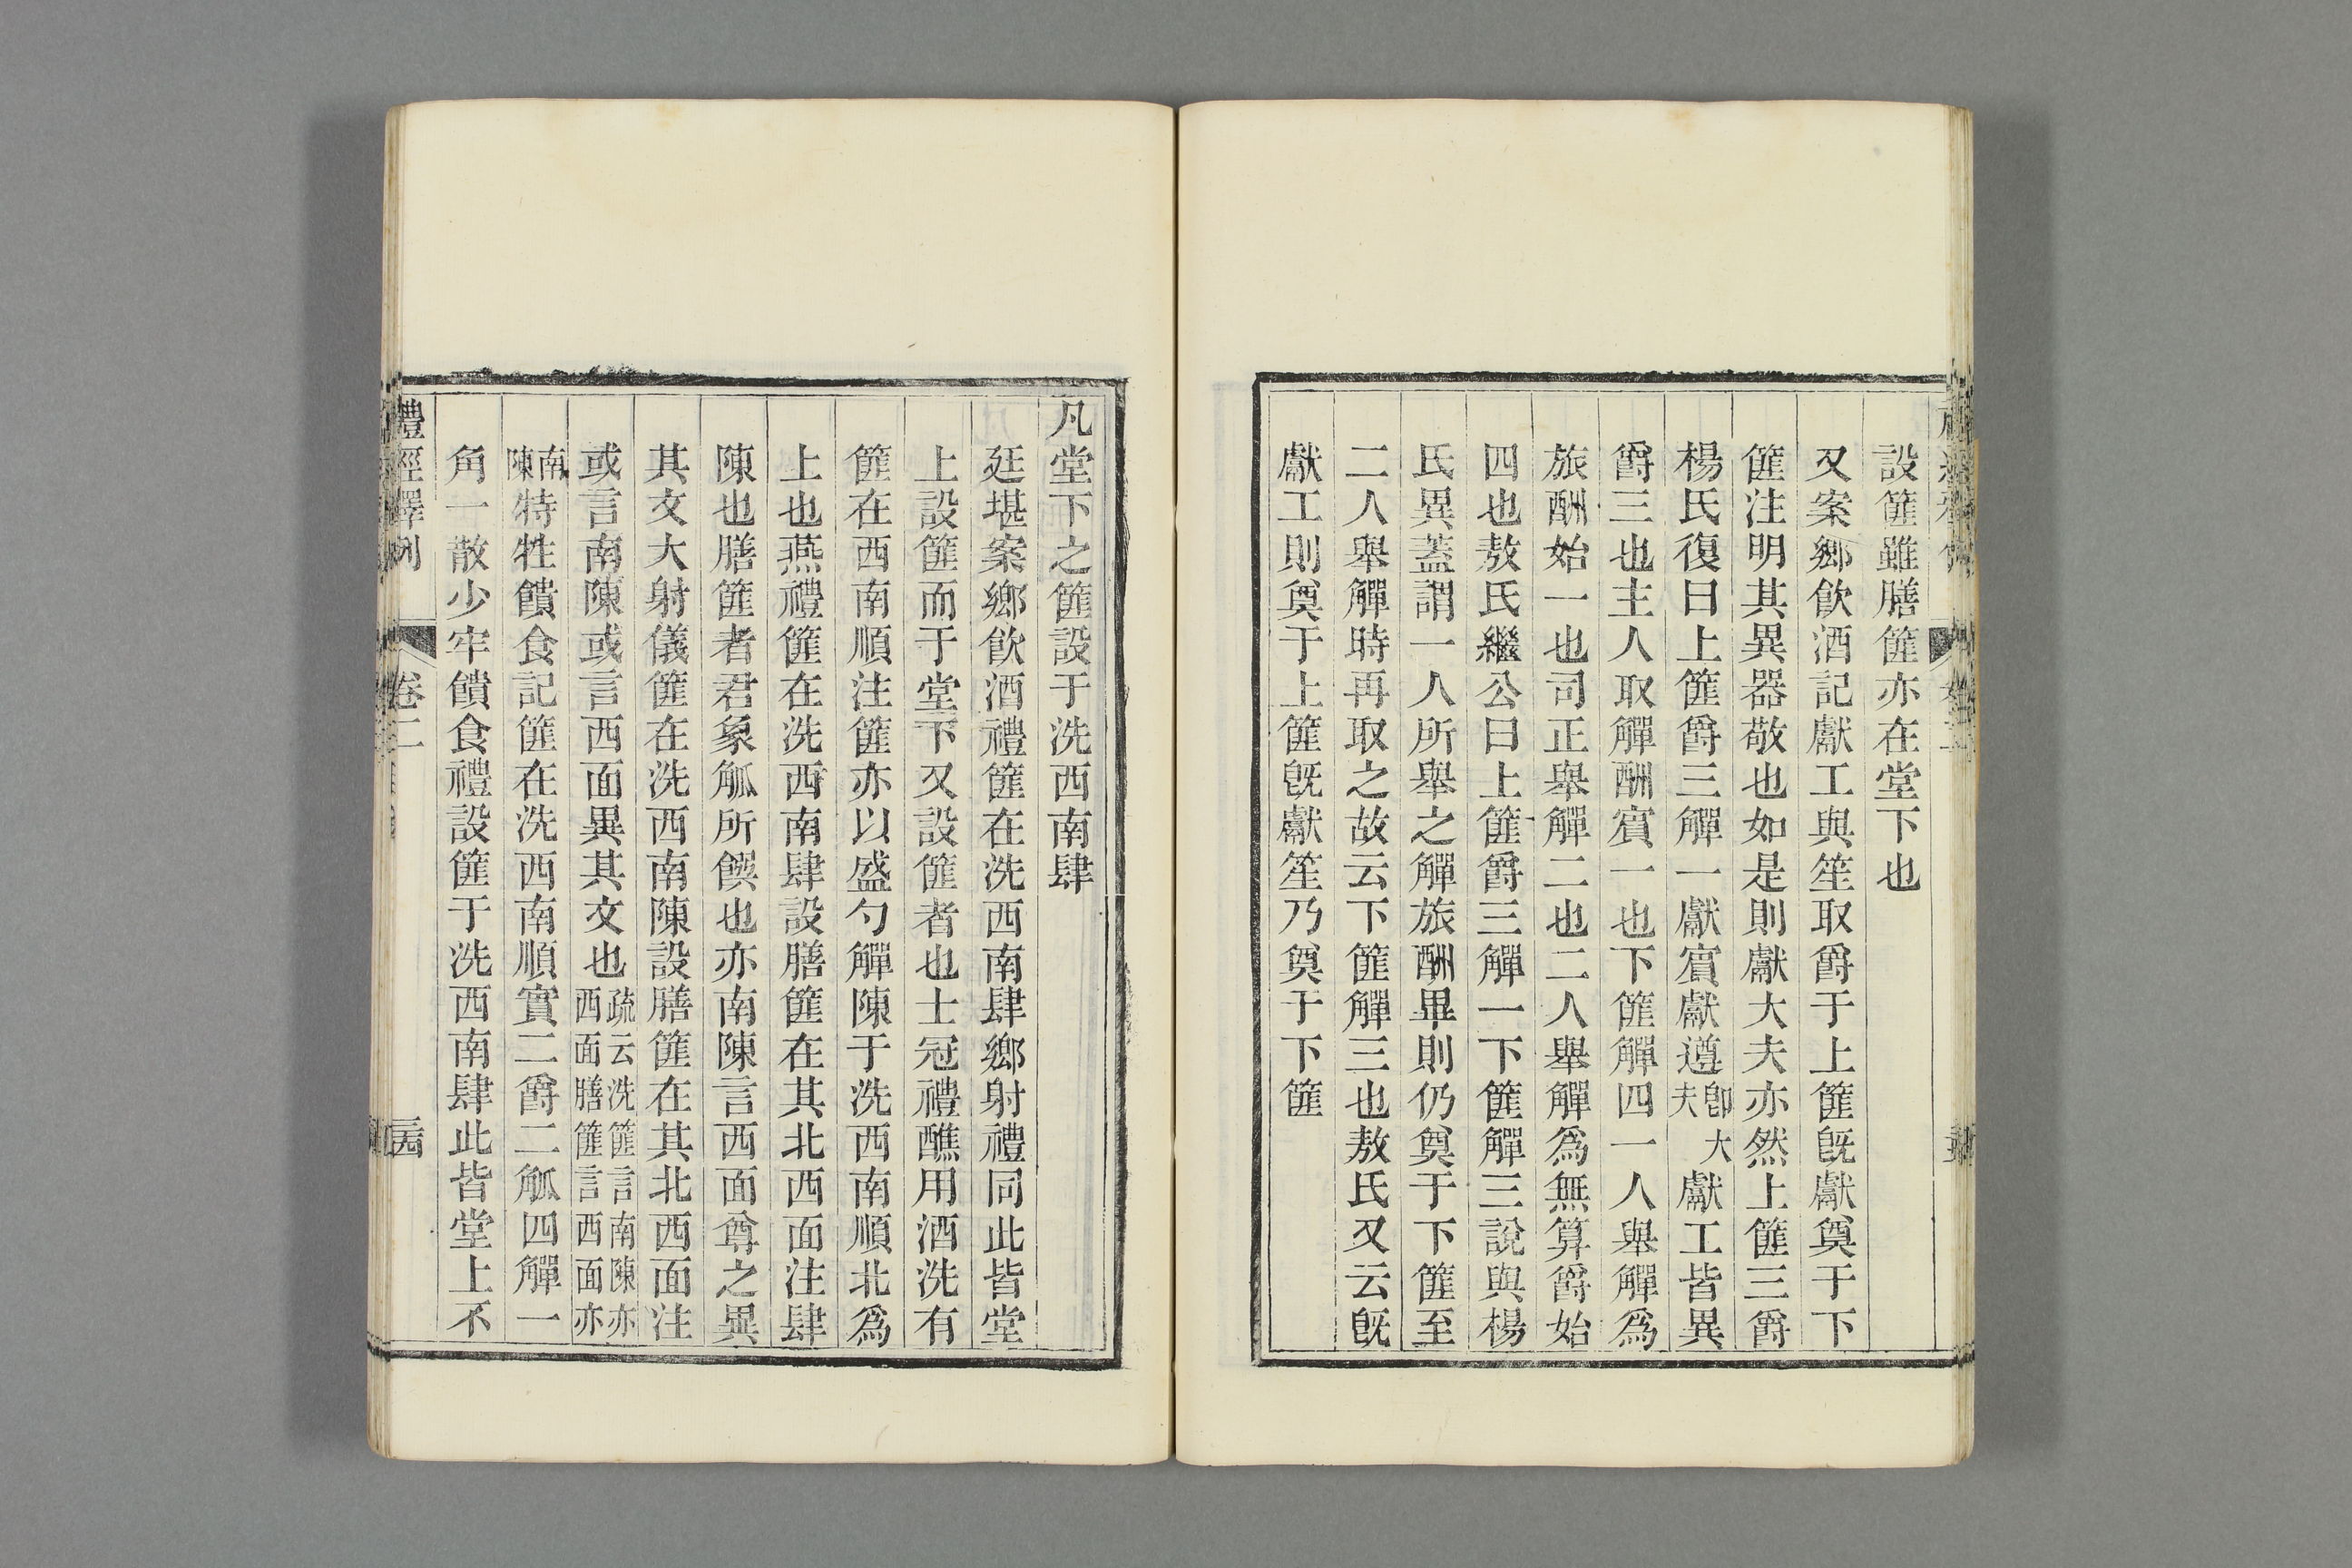 設篚雖膳篚亦在堂下也
又案鄉飲酒記獻工與笙取爵于上篚既獻奠于下
篚注明其異器敬也如是則獻大夫亦然上篚三爵
楊氏復曰上篚爵三觶一獻賓獻遵卽大夫獻工皆異
爵三也主人取觶酬賓一也下篚觶四一人舉觶為
旅酬始一也司正舉觶二也二人舉觶為無算爵始
四也敖氏繼公曰上篚爵三觶一下篚觶三說與楊
氏異蓋謂一人所舉之觶旅酬畢則仍奠于下篚至
二人舉觶時再取之故云下篚觶三也敖氏又云既
獻工則奠于上篚既獻笙乃奠于下篚
凡堂下之篚設于洗西南肆
廷堪案鄉飲酒禮篚在洗西南肆鄉射禮同此皆堂
上設篚而于堂下又設篚者也士冠禮醮用酒洗有
篚在西南順注篚亦以盛勺觶陳于洗西南順北為
上也燕禮篚在洗西南肆設膳篚在其北西面注肆
陳也膳篚者君象觚所饌也亦南陳言西面尊之異
其文大射儀篚在洗西南陳設膳篚在其北西面注
或言南陳或言西面異其文也疏云洗篚言南陳亦西面膳篚言西面亦
南陳特牲饋食記篚在洗西南順實二爵二觚四觶一
角一散少牢饋食禮設篚于洗西南肆此皆堂上不
禮經釋例 卷二